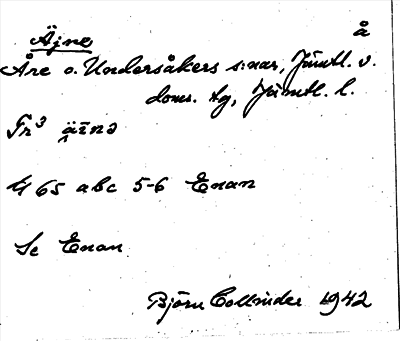 Äjne å
Åre o. Undersåkers s:nar, Jämtl. v.
doms. tg, Jämtl. l.
Fr³ äinə
G 65 abc 5-6 Enan
Se Enan
Björn Collinder 1942